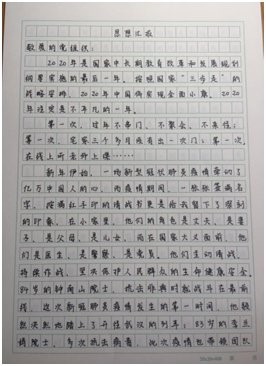 思想汇报
敬爱的党组织：
2020年是国家中长期教育改革和发展规划
纲要实施的最后一年。按照国家“三步走”的
战略安排，2020年中国将实现全面小康。2020
年注定是不平凡的一年。
第一次，过年不串门、不聚会、不来往；
第一次，宅家三个多月难有出一次门；第一次，
在线上听老师上课……
新年伊始，一场新型冠状肺炎疫情牵动了
亿万中国人的心。而疫情期间，一张张签满名
字、按满红手印的请战书更是给我留下了深刻
的印象。在小家里，他们的角色是丈夫、是妻
子、是父母、是儿女，而在国家大义面前，他
们是医生、是警察、是党员。他们主动请战、
持续作战，坚决保护人民群众的生命健康安全。
84岁的钟南山院士，他在非典时就战斗在最前
线，这次新冠肺炎疫情发生的第一时间，他毅
然决然地踏上了开往武汉的列车；83岁的李兰
娟院士，多次挑战病毒，此次疫情也带领团队